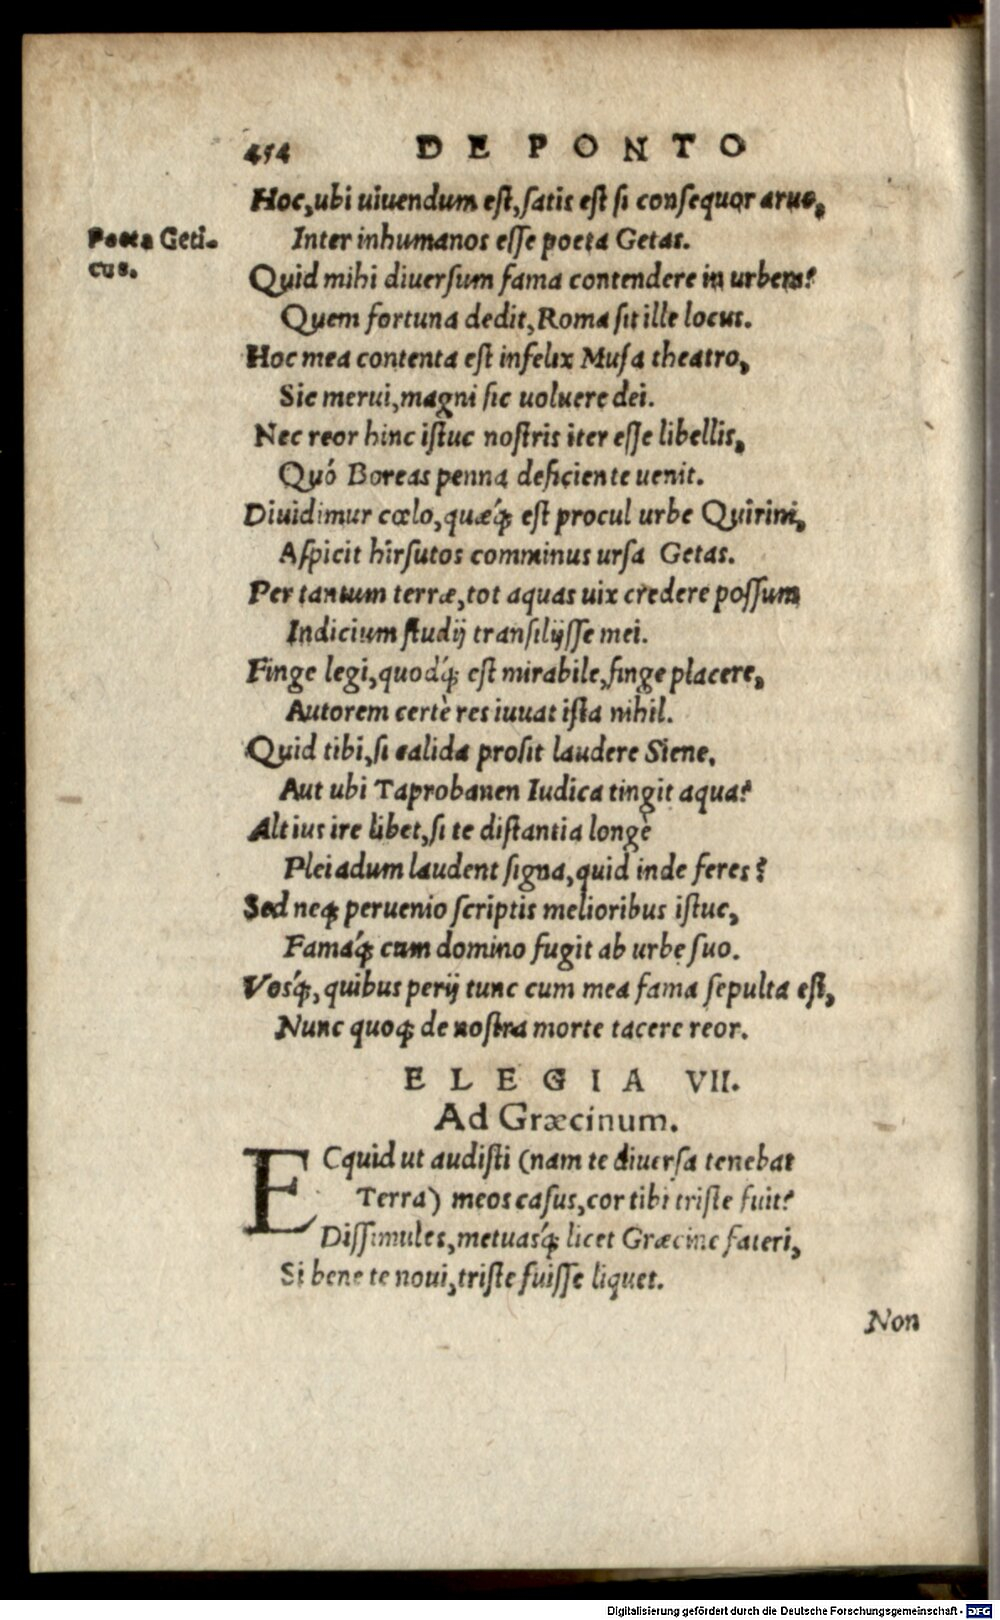 454 DE PONTO
Hoc, ubi uiuendum est, satis est si consequor aruo,
Poeta Geti-
cus.
Inter inhumanos esse poeta Getas.
Quid mihi diuersum fama contendere in urbem?
Quem fortuna dedit, Roma sit ille locus.
Hoc mea contenta est infelix Musa theatro,
Sic merui, magni sic uoluere dei.
Nec reor hinc istuc nostris iter esse libellis,
Quó Boreas penna deficiente uenit.
Diuidimur cœlo, quæq́; est procul urbe Quirini,
Aspicit hirsutos comminus ursa Getas.
Per tantum terræ, tot aquas uix credere possum
Indicium studij transilijsse mei.
Finge legi, quodq́; est mirabile, finge placere,
Autorem certè res iuuat ista nihil.
Quid tibi, si calida prosit laudere Siene,
Aut ubi Taprobanen Iudica tingit aqua?
Altius ire libet, si te distantia longè
Pleiadum laudent signa, quid inde feres?
Sed neq; peruenio scriptis melioribus istuc,
Famaq́; cum domino fugit ab urbe suo.
Vosq́;, quibus perij tunc cum mea fama sepulta est,
Nunc quoq; de nostra morte tacere reor.
ELEGIA VII.
Ad Græcinum.
ECquid ut audisti (nam te diuersa tenebat
Terra) meos casus, cor tibi triste fuit?
Dissimules, metuasq́; licet Græcine fateri,
Si bene te noui, triste fuisse liquet.
Non
Digitalisierung gefördert durch die Deutsche Forschungsgemeinschaft - DFG